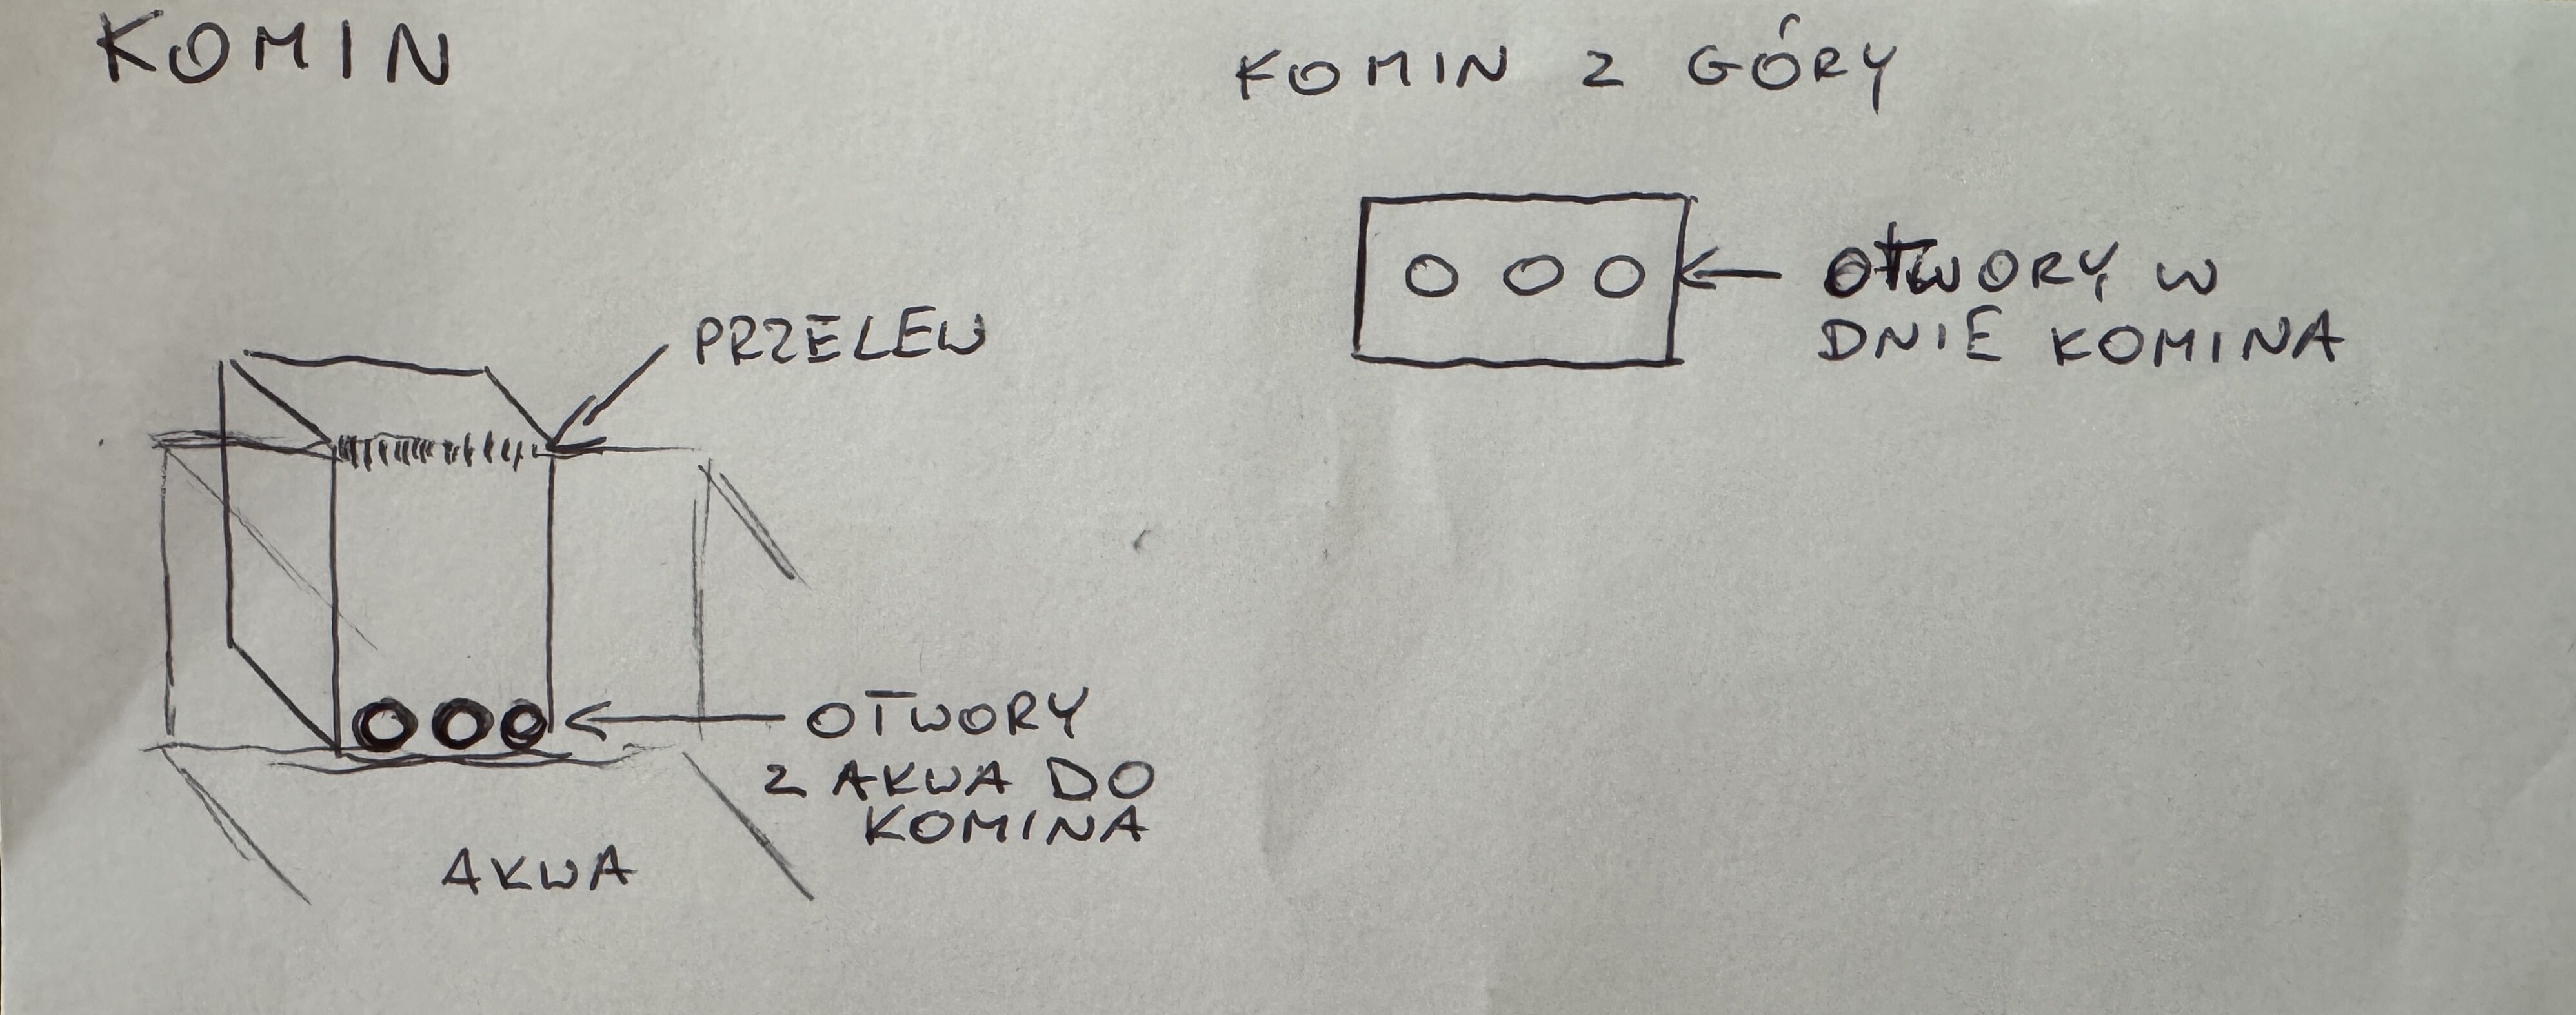 KOMIN
KOMIN Z GÓRY
PRZELEW
OTWORY W
DNIE KOMINA
OTWORY
Z AKWA DO
KOMINA
AKWA